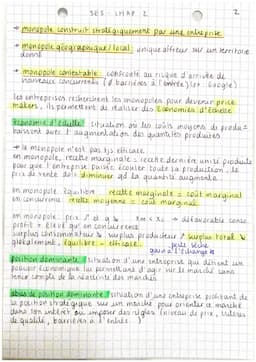 SES - CHAP. 2
2
→ monopole construit stratégiquement par une entreprise
→ monopole géographique / local : unique offreur sur un territoire
donné
→ monopole contestable : confronté au risque d'arrivée de
nouveaux concurrents (∅ barrières à l'entrée) (ex : Google)
les entreprises recherchent les monopoles pour devenir price
makers, ils permettent de réaliser des économies d'échelle
économie d'échelle : situation où les coûts moyens de produc°
baissent avec l'augmentation des quantités produites
→ le monopole n'est pas tjs efficace
en monopole, recette marginale = recette dernière unité produite
pour que l'entreprise puisse écouler toute sa production, le
prix de vente doit diminuer qd la quantité augmente
en monopole : équilibre recette marginale = coût marginal
en concurrence : recette moyenne = coût marginal
en monopole : prix ↗ et q ↘ → défavorable conso
profit + élevé qu'en concurrence
surplus consommateur ↘ surplus producteur ↗ surplus total ↘
globalement, équilibre - efficace. perte sèche
gain à l'échange ↘
position dominante : situation d'une entreprise qui détient un
pouvoir économique lui permettant d'agir sur le marché sans
tenir compte de la réaction des marchés
abus de position dominante : situation d'une entreprise profitant de
sa position stratégique sur un marché pour orienter le marché
dans son intérêt ou imposer des règles (niveau de prix, critères
de qualité, barrières à l'entrée...)